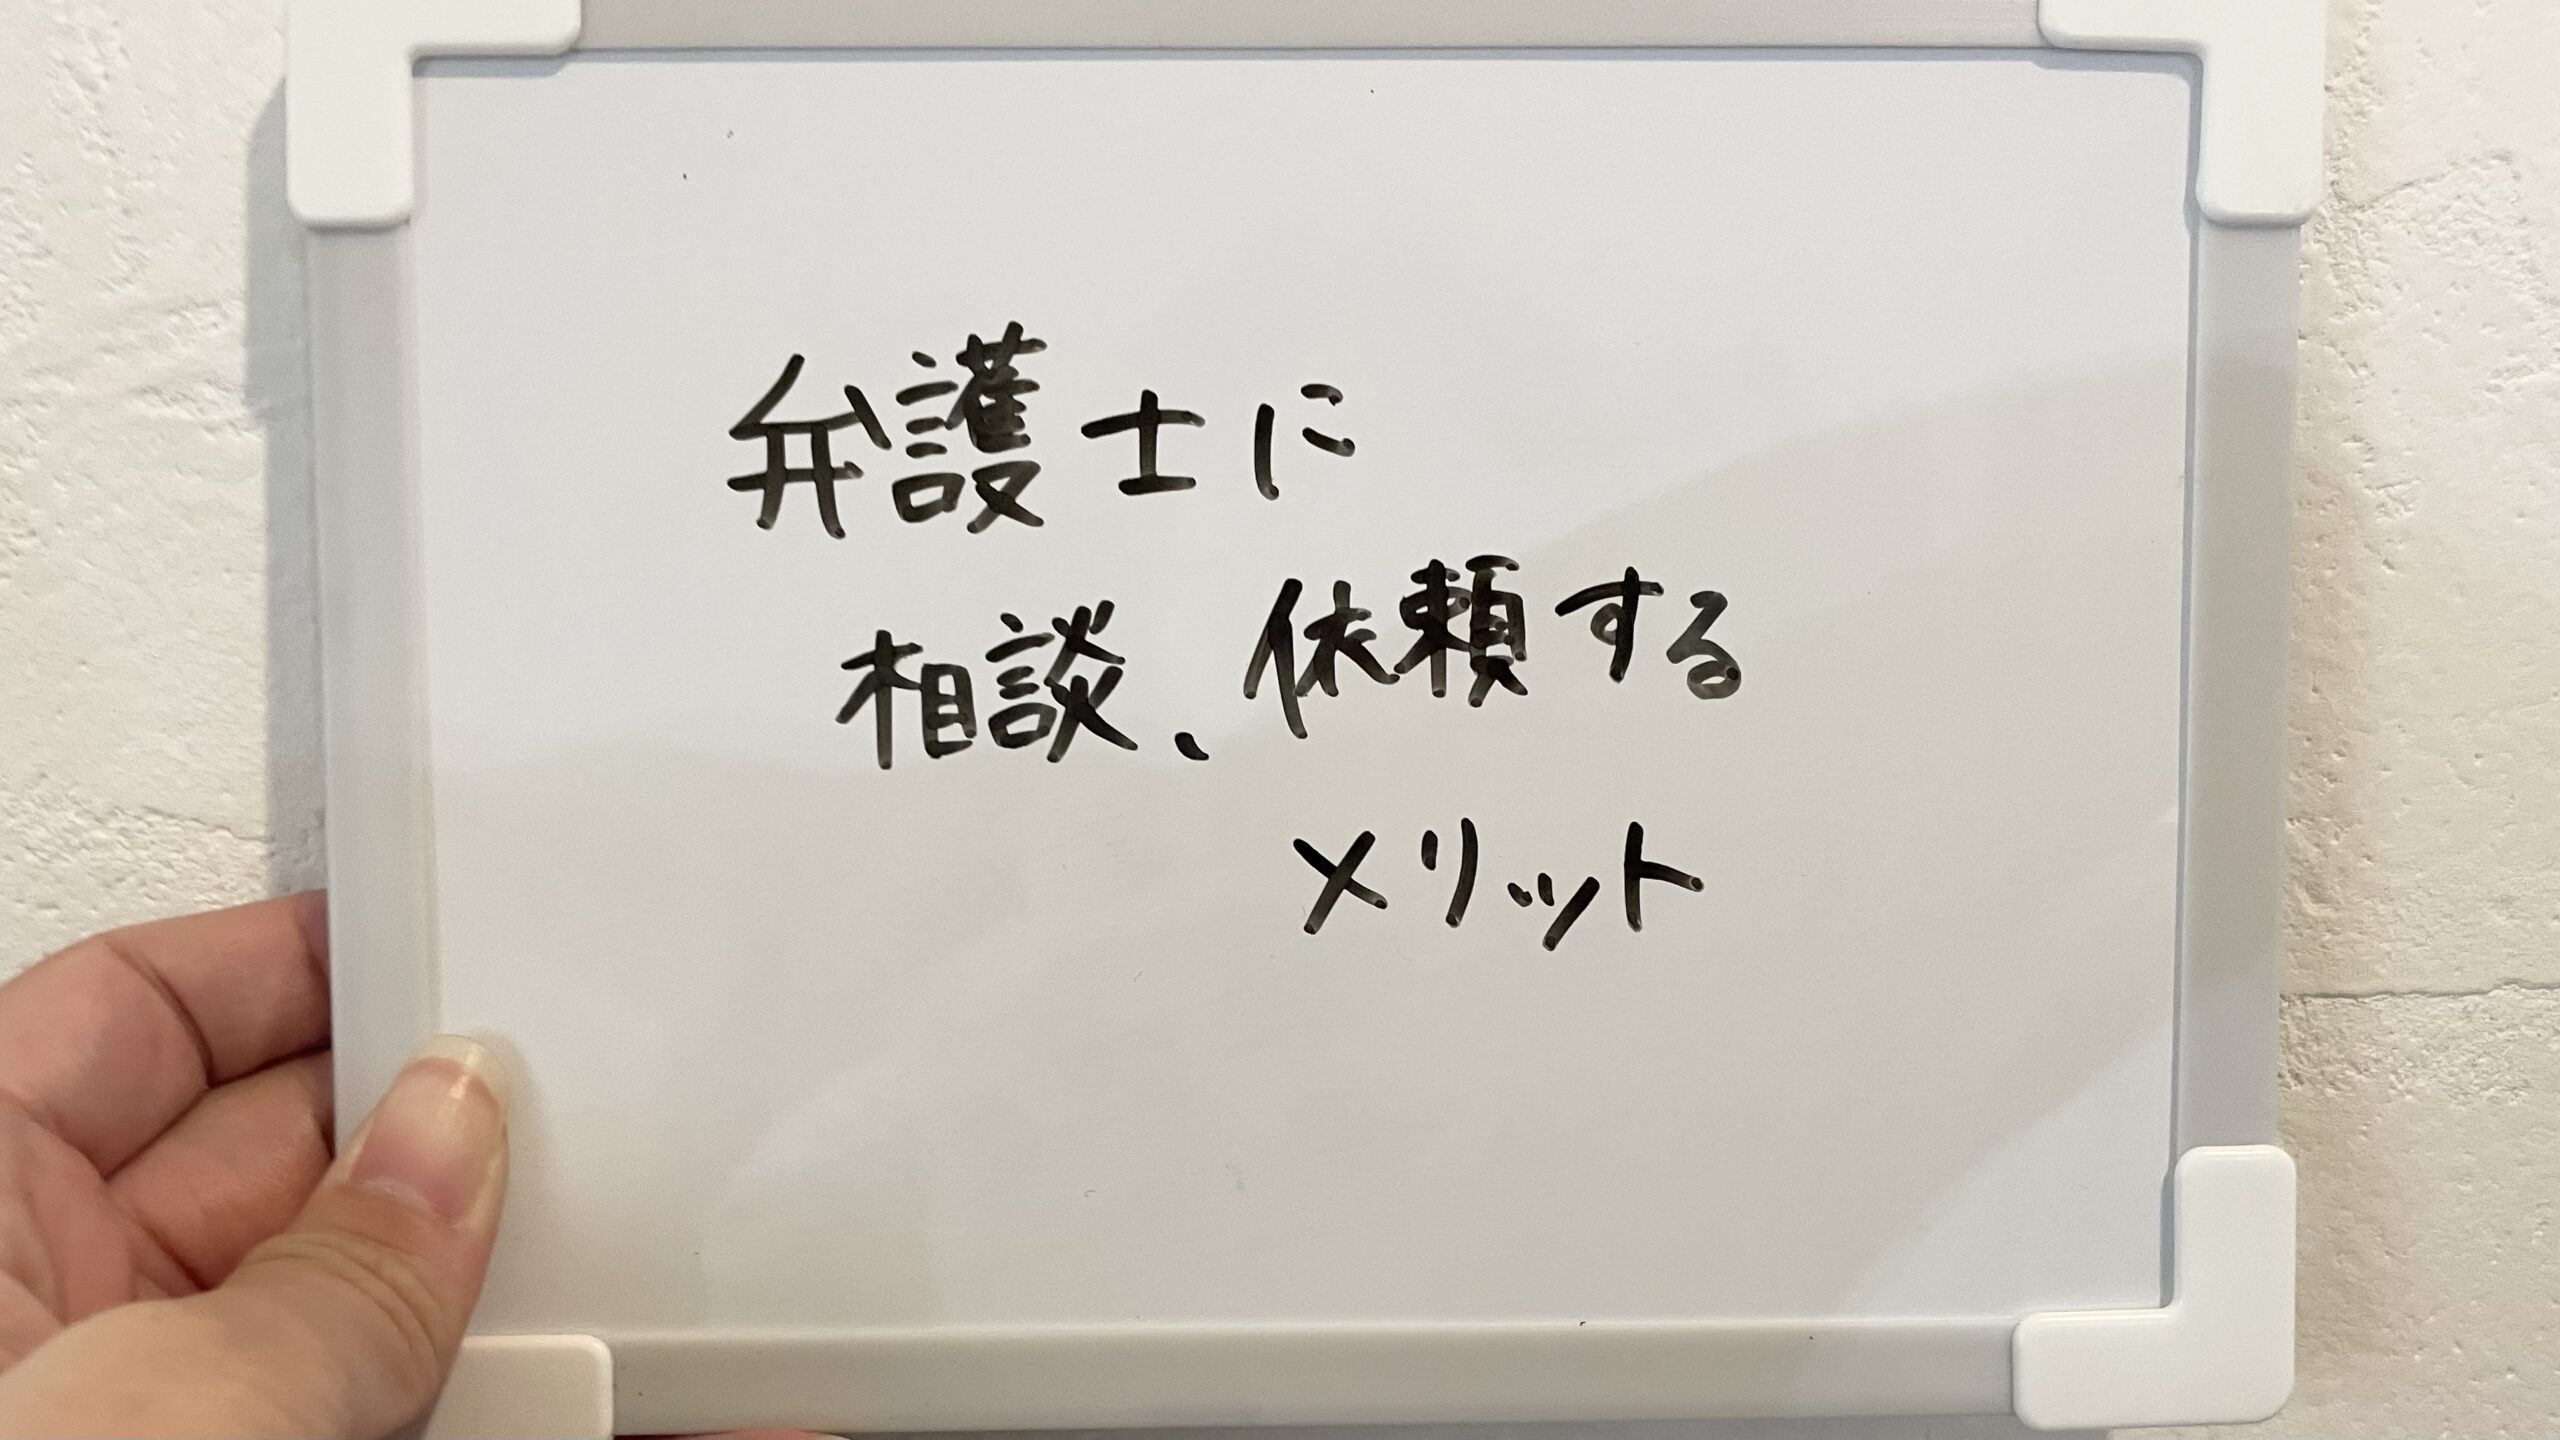 弁護士に
相談、依頼する
メリット